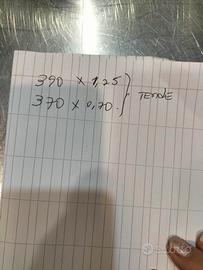 390 x 1,25 } TENDE
370 x 0,70